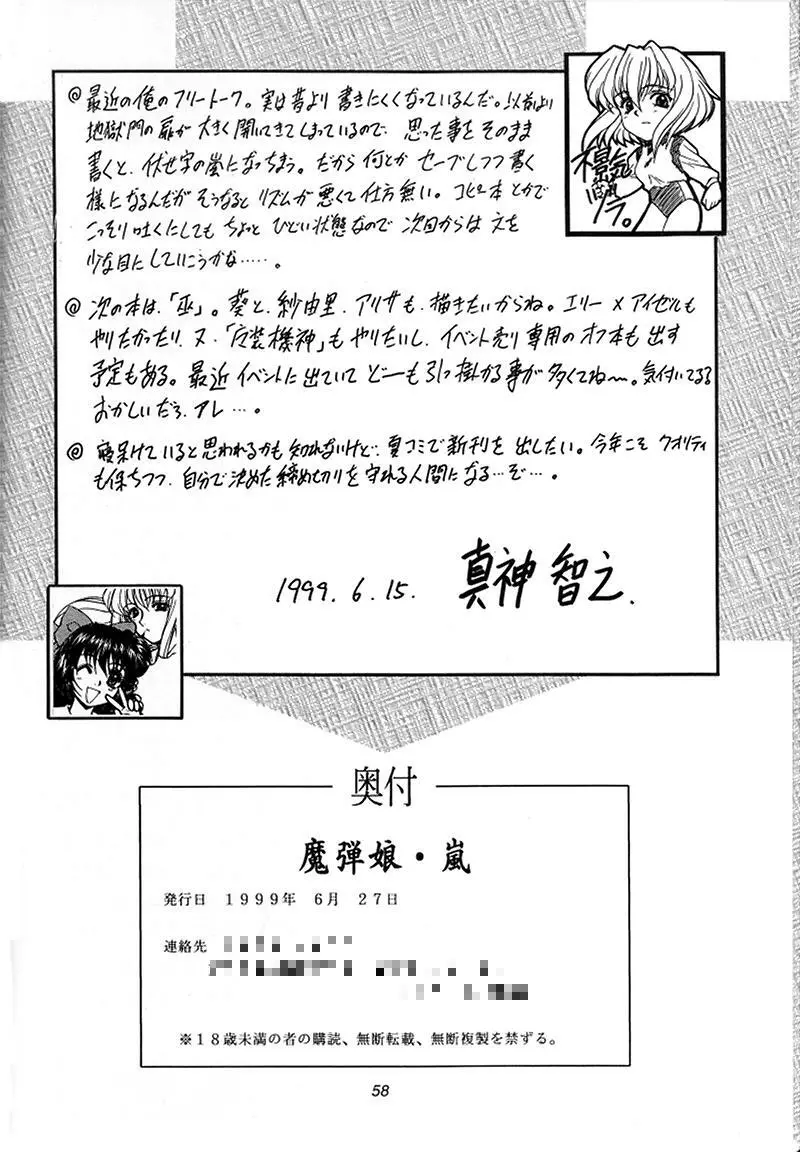 @ 最近の俺のフリートーク。実は昔より書きにくくなっているんだ。以前より
地獄門の扉が大きく開いてきてしまっているので、思った事をそのまま
書くと、伏せ字の嵐になっちまう。だから何とかセーブしつつ書く
様になるんだがそうなるとリズムが悪くて仕方無い。コピー本とかで
こっそり吐くにしてもちょっとひどい状態なので次回からは文を
少な目にしていこうかな……。
景気
ラ。
@ 次の本は、「巫」。葵と、紗由里、アリサも、描きたいからね。エリー×アイゼルも
やりたかったり、又、「装機神」もやりたいし、イベント売り専用のオフ本も出す
予定もある。最近イベントに出ていてどーも引っ掛かる事が多くてね〜。気付いてるる
おかしいだろ、アレ…。
@ 寝呆けていると思われるかも知れないけど、夏コミで新刊を出したい。今年こそクオリティ
も保ちつつ、自分で決めた締め切りを守れる人間になる…ぞ…。
1999.6.15. 真神 智之.
奥付
魔弾娘・嵐
発行日 1999年 6月 27日
連絡先
※18歳未満の者の購読、無断転載、無断複製を禁ずる。
58